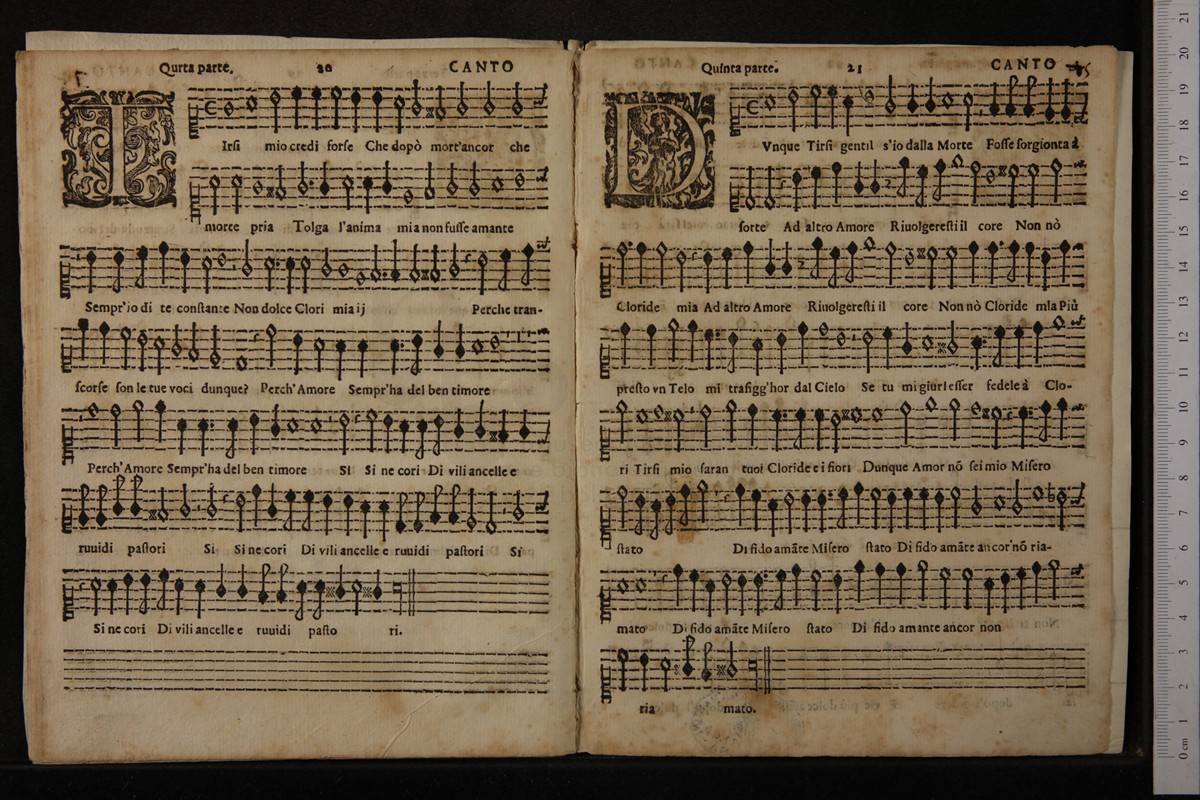 Qurta parte. 20 CANTO
TIrsi mio credi forse Che dopò mort'ancor che
morte pria Tolga l'anima mia non fusse amante
Sempr'io di te constante Non dolce Clori mia ij Perche tran-
scorse son le tue voci dunque? Perch'Amore Sempr'ha del ben timore
Perch'Amore Sempr'ha del ben timore Si Si ne cori Di vili ancelle e
ruuidi pastori Si Si ne cori Di vili ancelle e ruuidi pastori Si
Si ne cori Di vili ancelle e ruuidi pasto ri.
Quinta parte. 21 CANTO
DVnque Tirsi gentil s'io dalla Morte Fosse sorgionta à
sorte Ad altro Amore Riuolgeresti il core Non nò
Cloride mia Ad altro Amore Riuolgeresti il core Non nò Cloride mia Più
presto vn Telo mi trafigg'hor dal Cielo Se tu mi giuri esser fedele à Clo-
ri Tirsi mio saran tuoi Cloride e i fiori Dunque Amor nõ sei mio Misero
stato Di fido amãte Misero stato Di fido amãte ancor'nõ ria-
mato Di fido amãte Misero stato Di fido amante ancor non
ria mato.